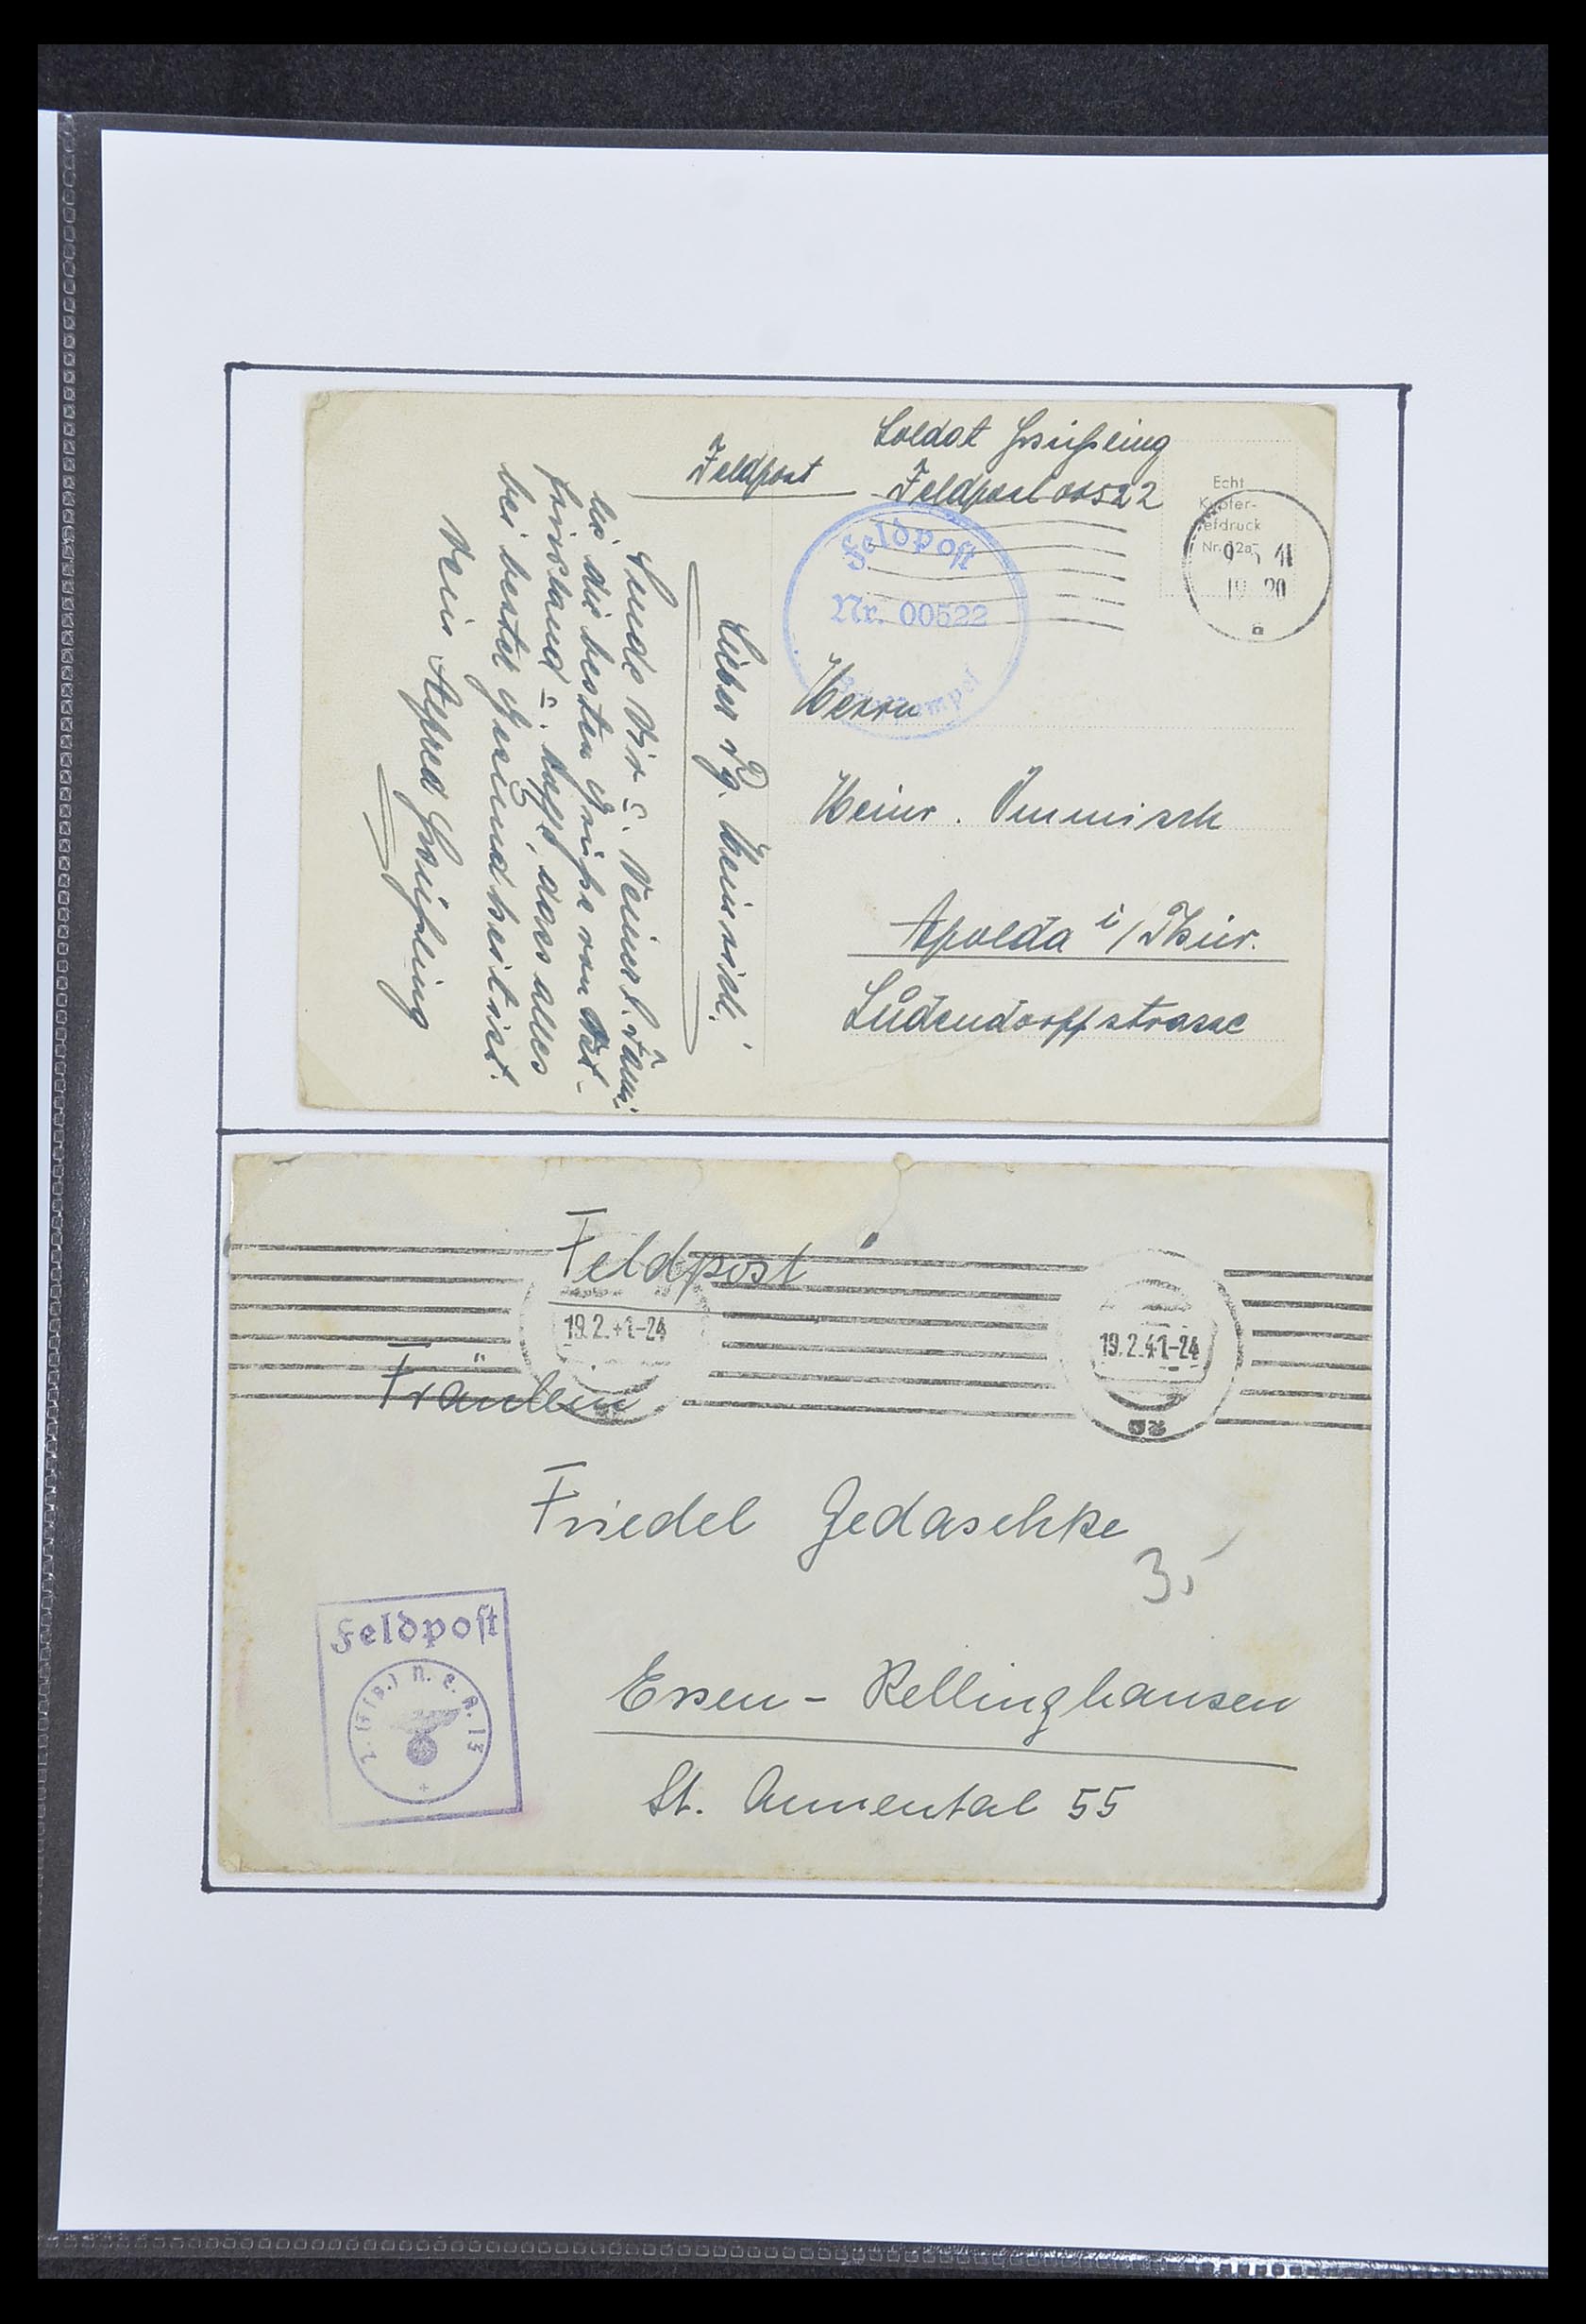 Feldpost
Soldat Grüßling
Feldpost 00522
Echt
Kupfer-
tiefdruck
19 20
a
Feldpost
Nr. 00522
Herrn
Heinr. Immisch
Apolda i/Thür.
Ludendorffstrasse
Lieber Pg. Heinrich!
Sende Dir u. Deiner l. Fami-
lie die besten Grüße von
u. hoffe, dass alles
bei bester Gesundheit ist.
Dein Alfred Grüßling
Feldpost
19.2.41-24
19.2.41-24
Fräulein
Friedel Gedaschke
3,
Essen-Rellinghausen
St. Annental 55
Feldpost